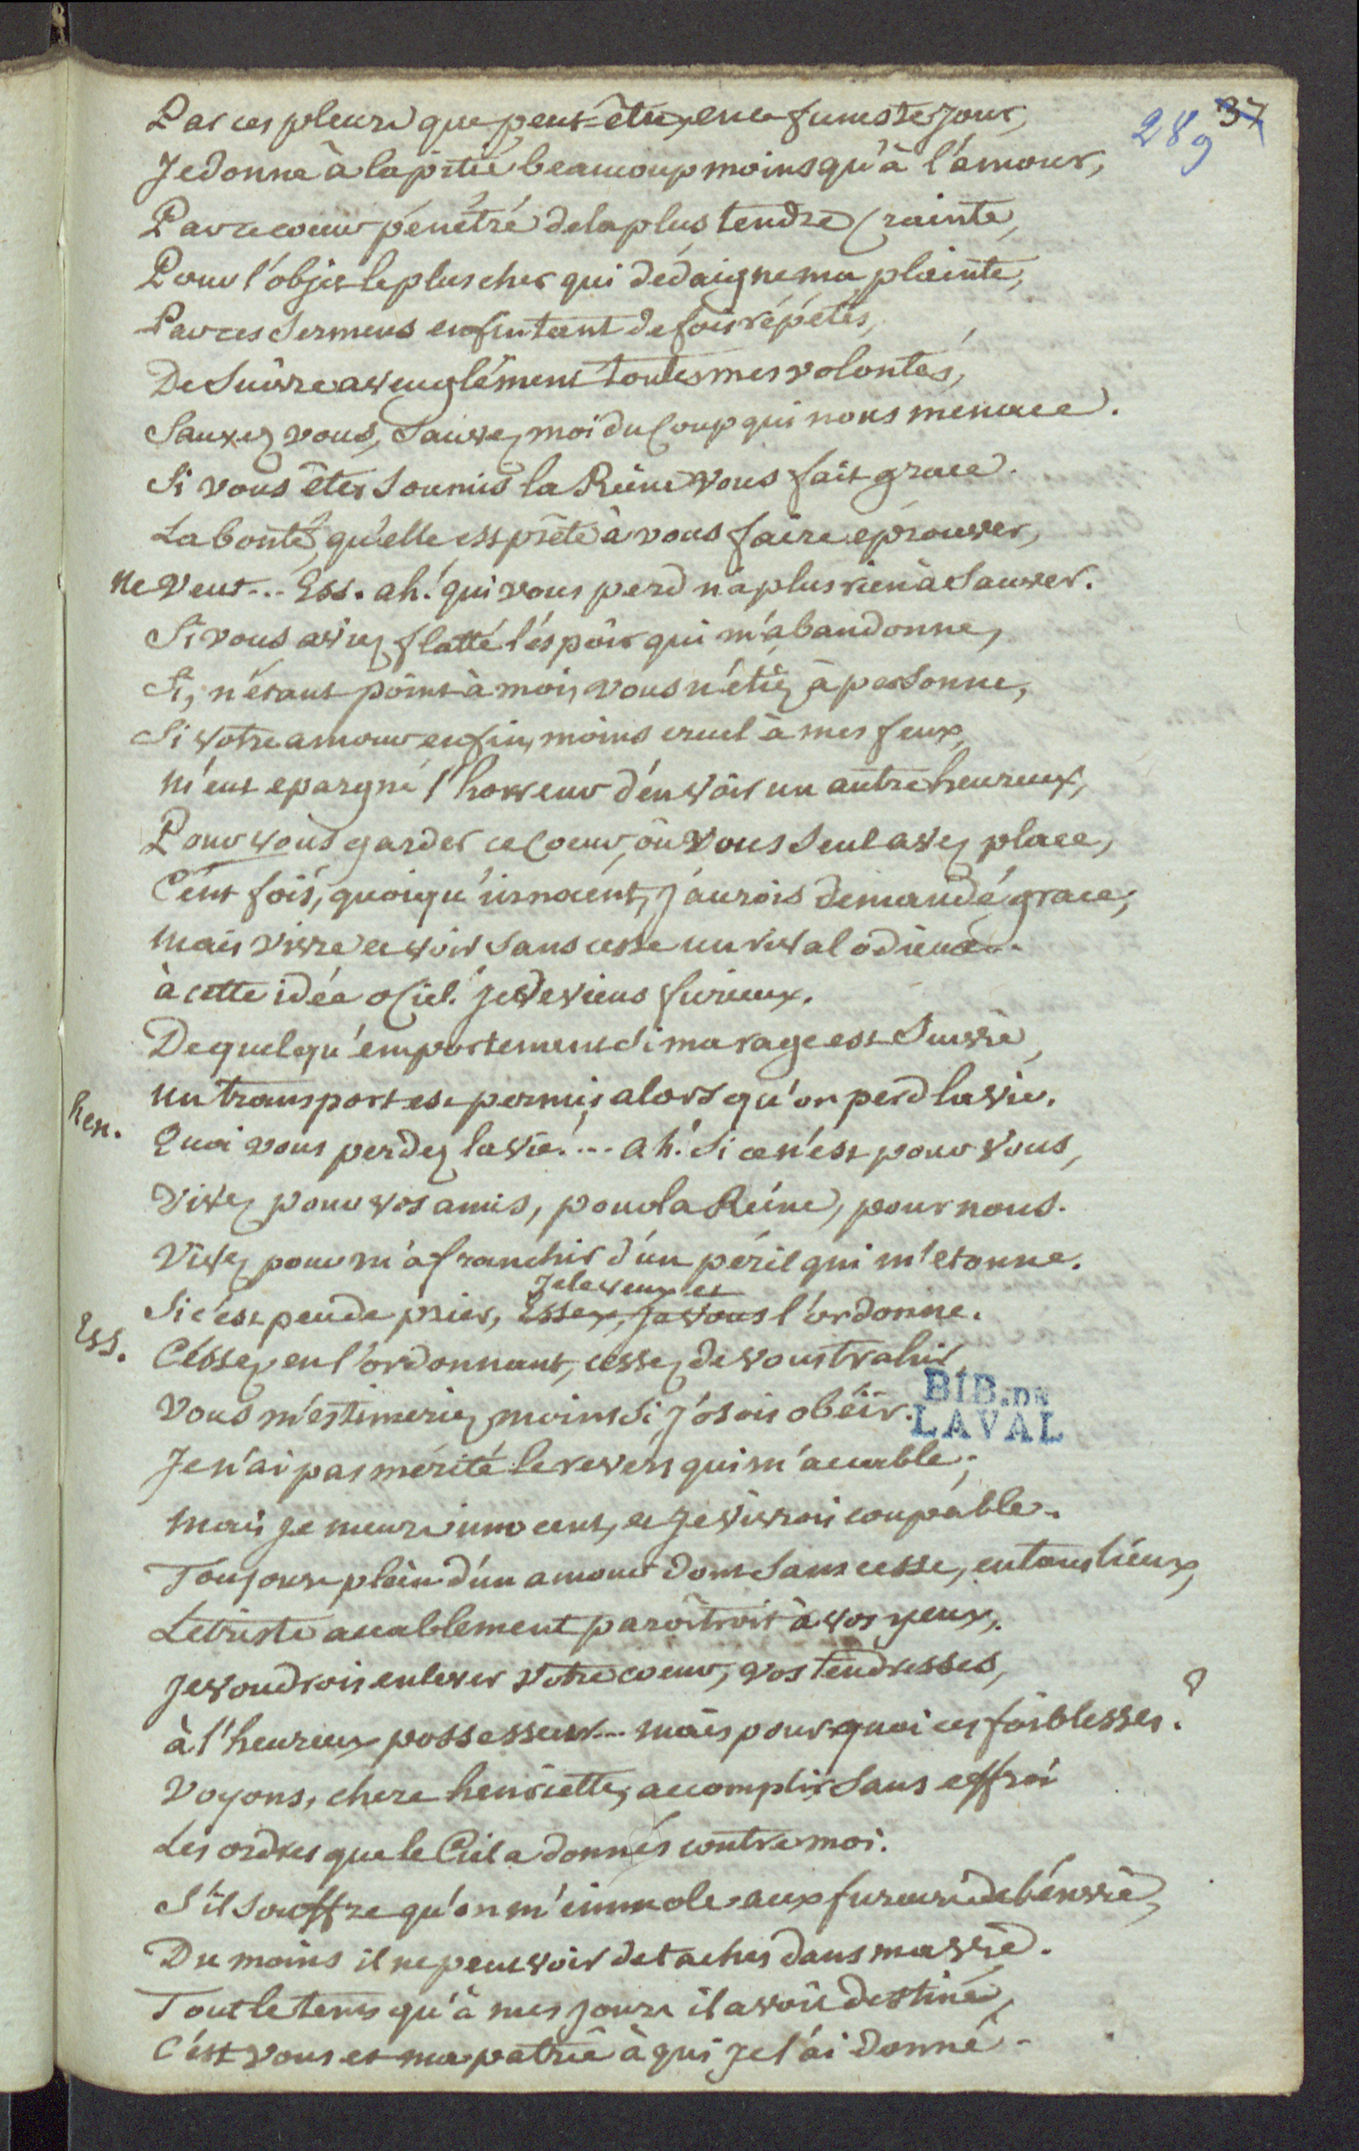 289 37
Par ces pleurs que peut-être, en ce funeste jour,
Je donne à la pitié beaucoup moins qu'à l'amour,
Par ce coeur pénétré de la plus tendre Crainte,
Pour l'objet le plus cher qui dédaigne ma plainte,
Par ces Sermens enfin tant de fois répétés,
De Suivre aveuglément toutes mes volontés,
Sauvez vous, Sauvez moi du Coup qui nous menace.
Si vous êtes Soumis la Reine vous fait grace.
La bonté, qu'elle est prête à vous faire éprouver,
ne Veut... Ess. ah! qui vous perd n'a plus rien à Sauver.
Si vous aviez flatté l'éspoir qui m'abandonne,
Si, n'étant point à moi, vous n'étiez à personne,
Si votre amour enfin, moins cruel à mes feux,
m'eut epargné l'horreur d'en voir un autre heureux,
Pour vous garder ce Coeur, où vous Seul avez place,
Cént fois, quoiqu'innocént, j'aurois demandé grace;
mais vivre et voir Sans cesse un rival odieux...
à cette idée o Ciel! je deviens furieux.
De quelqu'emportement Si ma rage est Suivie,
un transport est permis alors qu'on perd la vie.
hen. Quoi vous perdez la vie!... ah! Si ce n'est pour vous,
Vivez pour vos amis, pour la Reine, pour nous.
Vivez pour m'afranchir d'un péril qui m'etonne.
Je le veux et
Si c'est peu de prier, Essex, je vous l'ordonne.
Ess. Céssez en l'ordonnant, cessez de vous trahir,
Vous m'estimeriez moins Si j'osois obéir.
BIB. DE
LAVAL
Je n'ai pas mérité le revers qui m'accable;
mais je meurs innocent, et je vivrois coupable.
Toujours plein d'un amour dont Sans cesse, en tous lieux,
Le triste accablement paroîtroit à vos yeux,
je voudrois enlever votre coeur, vos tendresses,
à l'heureux possesseur... mais pourquoi ces foiblesses?
Voyons, chere henriette, accomplir Sans effroi
Les ordres que le Ciel a donnés contre moi.
S'il Souffre qu'on m'immole aux fureurs de l'énvie,
Du moins il ne peut voir de taches dans ma vie.
Tout le tems qu'à mes jours il avoit destiné,
C'est vous et ma patrie à qui je l'ai donné.